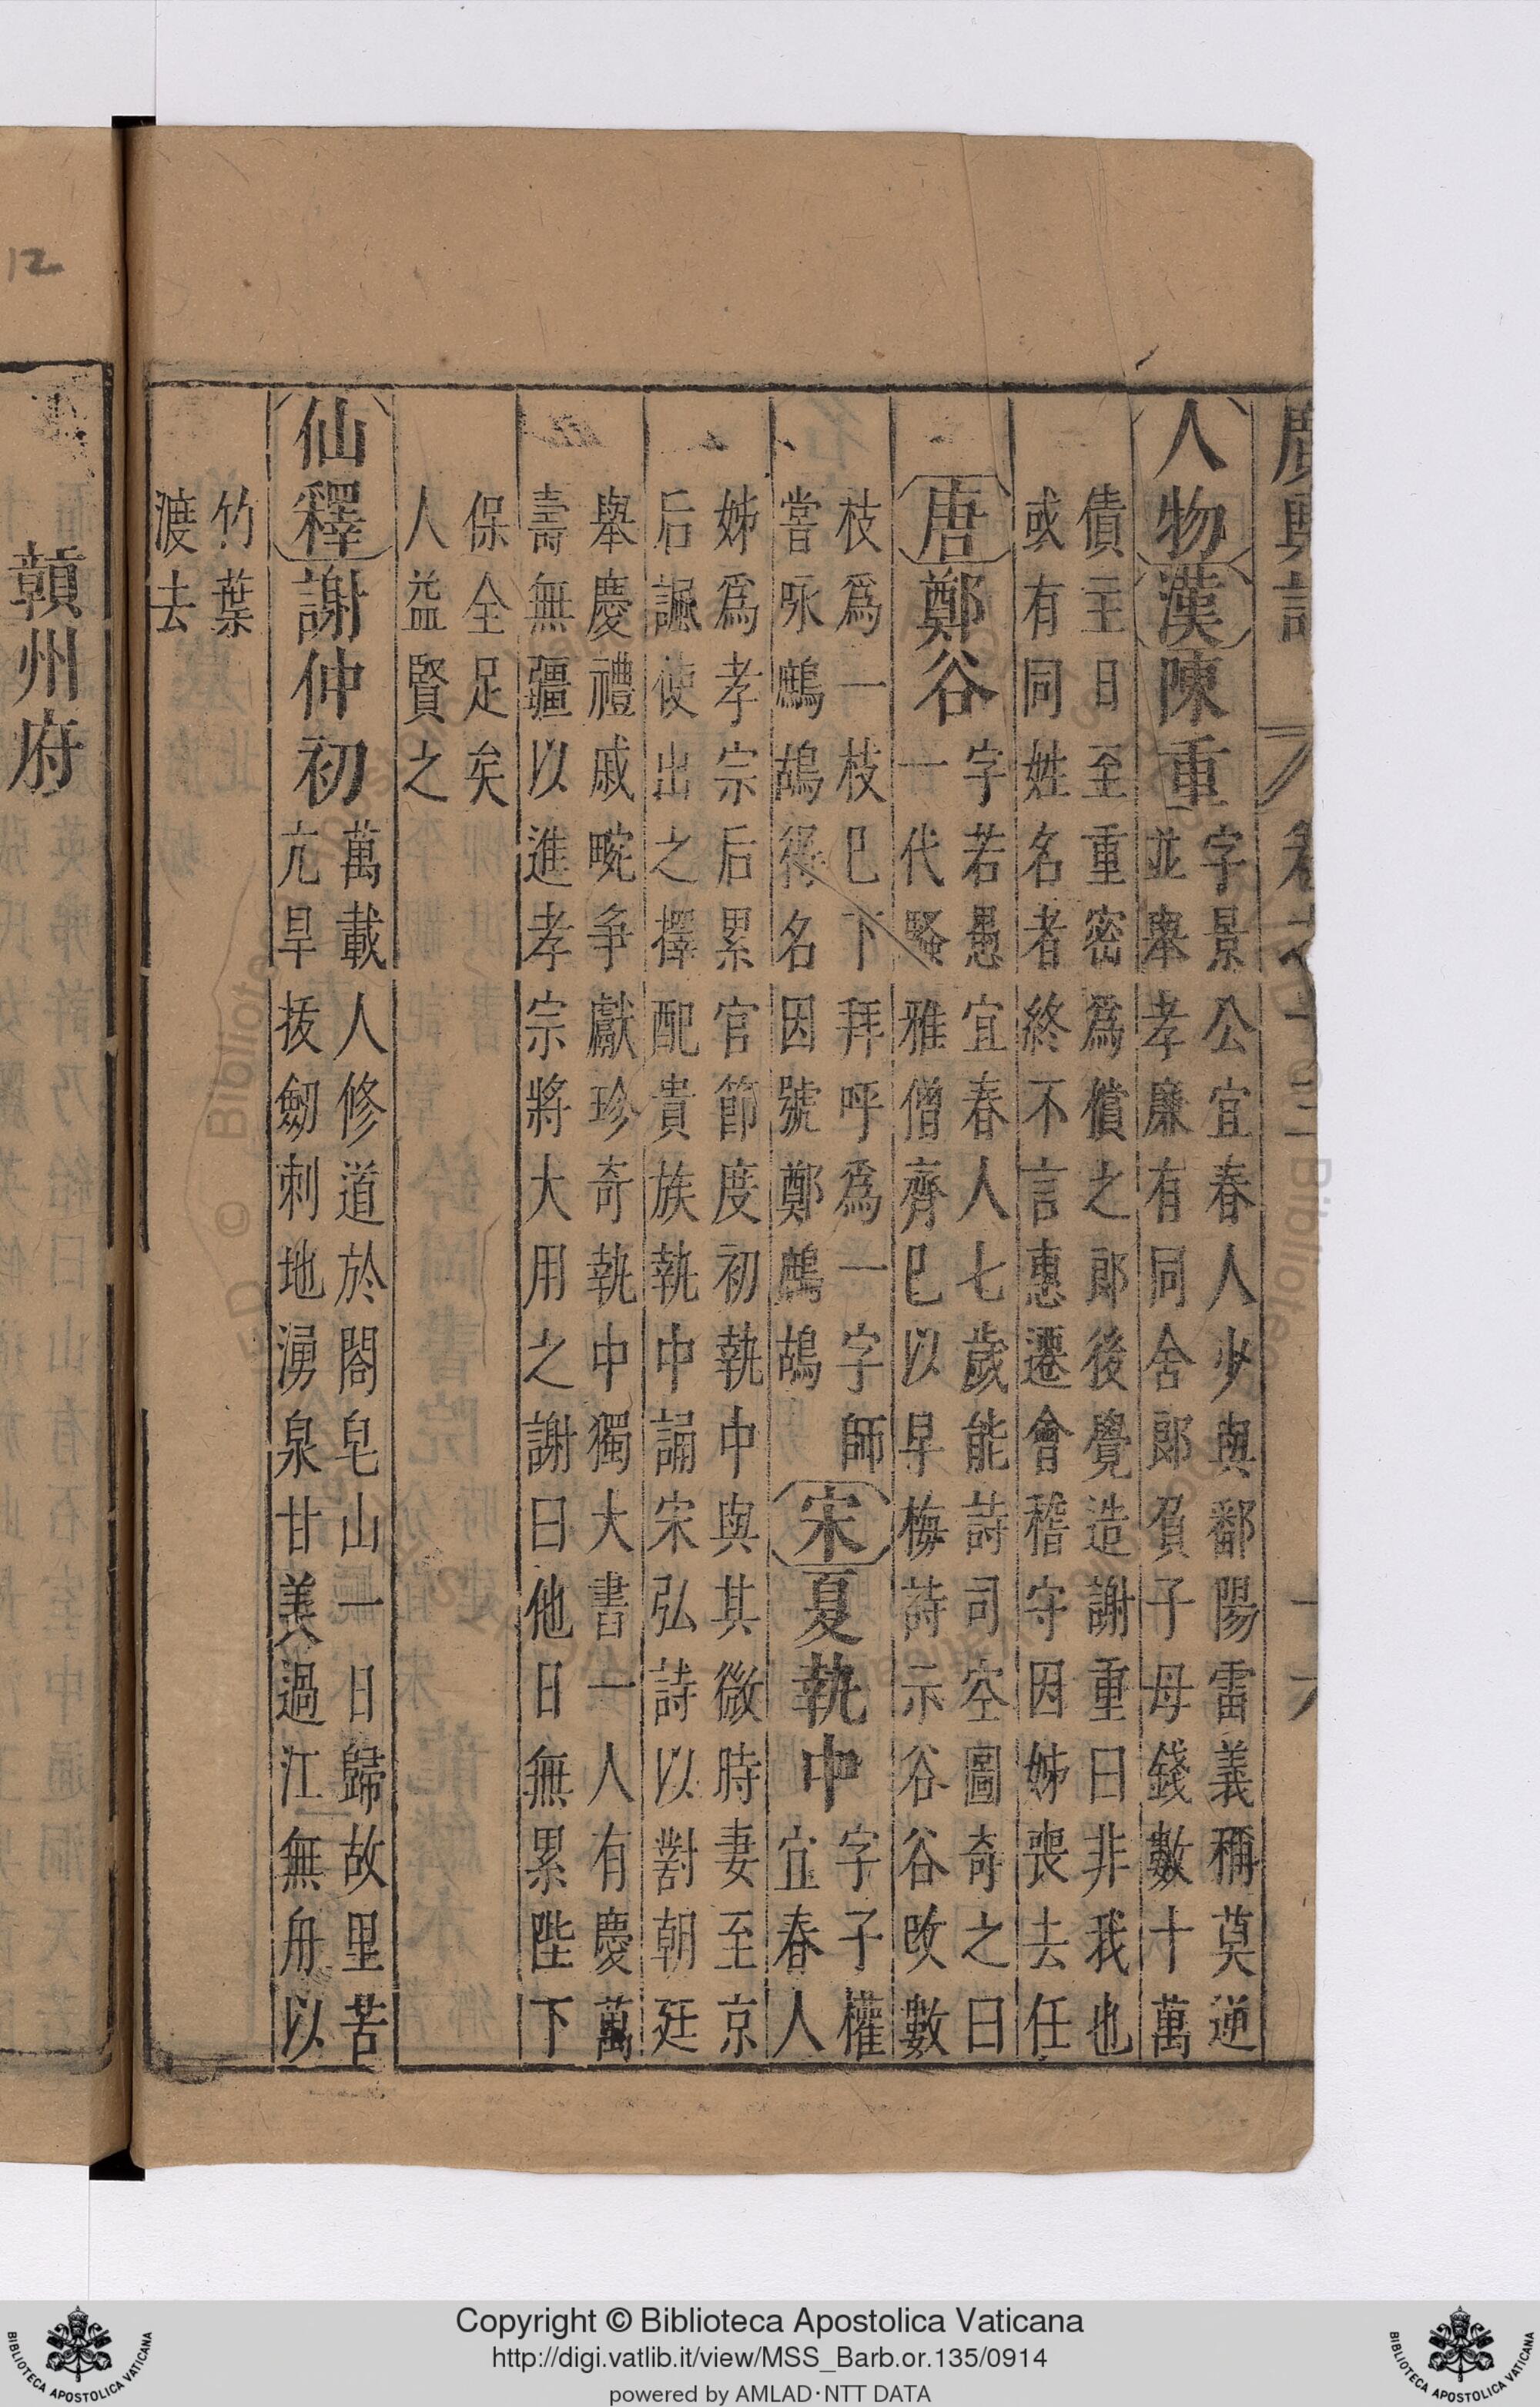 廣輿記 卷之十二 十六
人物 漢 陳重 字景公宜春人少與鄱陽雷義稱莫逆
並舉孝廉有同舍郎負子母錢數十萬
債主日至重密爲償之郎後覺造謝重曰非我也
或有同姓名者終不言惠遷會稽守因姊喪去任
唐 鄭谷 字若愚宜春人七歲能詩司空圖奇之曰
一代騷雅僧齊己以早梅詩示谷谷改數
枝爲一枝己下拜呼爲一字師
嘗咏鷓鴣得名因號鄭鷓鴣
宋 夏執中 字子權
宜春人
姊爲孝宗后累官節度初執中與其微時妻至京
后諷使出之擇配貴族執中誦宋弘詩以對朝廷
舉慶禮戚畹爭獻珍奇執中獨大書一人有慶萬
壽無疆以進孝宗將大用之謝曰他日無累陛下
保全足矣
人益賢之
仙釋 謝仲初 萬載人修道於閤皂山一日歸故里苦
亢旱拔劒刺地湧泉甘美過江無舟以
竹葉
渡去
贛州府
12
Copyright © Biblioteca Apostolica Vaticana
http://digi.vatlib.it/view/MSS_Barb.or.135/0914
powered by AMLAD·NTT DATA
BIBLIOTECA APOSTOLICA VATICANA
BIBLIOTECA APOSTOLICA VATICANA